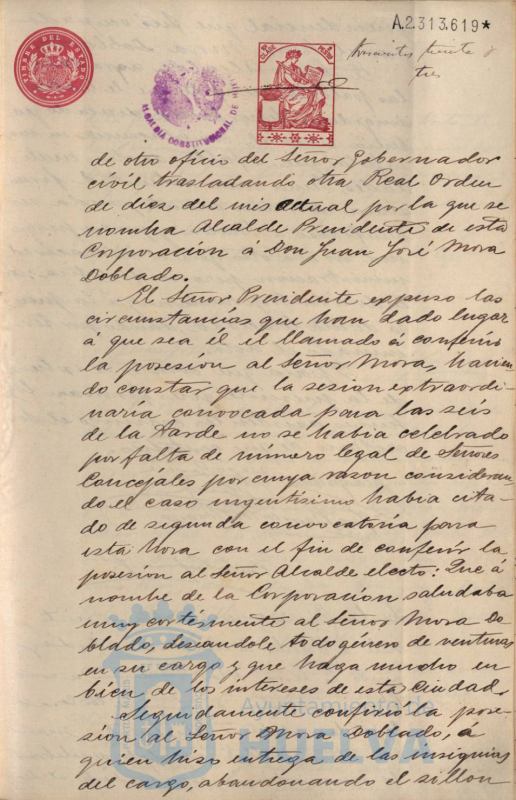 A.2.313.619*
TIMBRE DEL ESTADO
ALCALDIA CONSTITUCIONAL DE
treinta y
tres
de otro oficio del Señor Gobernador
civil trasladando otra Real Orden
de diez del mes actual por la que se
nombra Alcalde Presidente de esta
Corporación á Don Juan José Mora
Doblado.
El Señor Presidente expuso las
circunstancias que han dado lugar
á que sea él el llamado á conferir
la posesion al Señor Mora, hacien-
do constar que la sesion extraordi-
naria convocada para las seis
de la tarde no se habia celebrado
por falta de número legal de Señores
Concejales por cuya razon consideran-
do el caso urgentísimo habia cita-
do de segunda convocatoria para
esta hora con el fin de conferir la
posesion al Señor Alcalde electo: Que á
nombre de la Corporacion saludaba
muy cortésmente al Señor Mora Do-
blado, deseandole todo género de venturas
en su cargo y que haga mucho en
bien de los intereses de esta Ciudad.
Seguidamente confirió la pose-
sion al Señor Mora Doblado, á
quien hizo entrega de las insignias
del cargo, abandonando el sillon
Ayuntamiento de
HUELVA